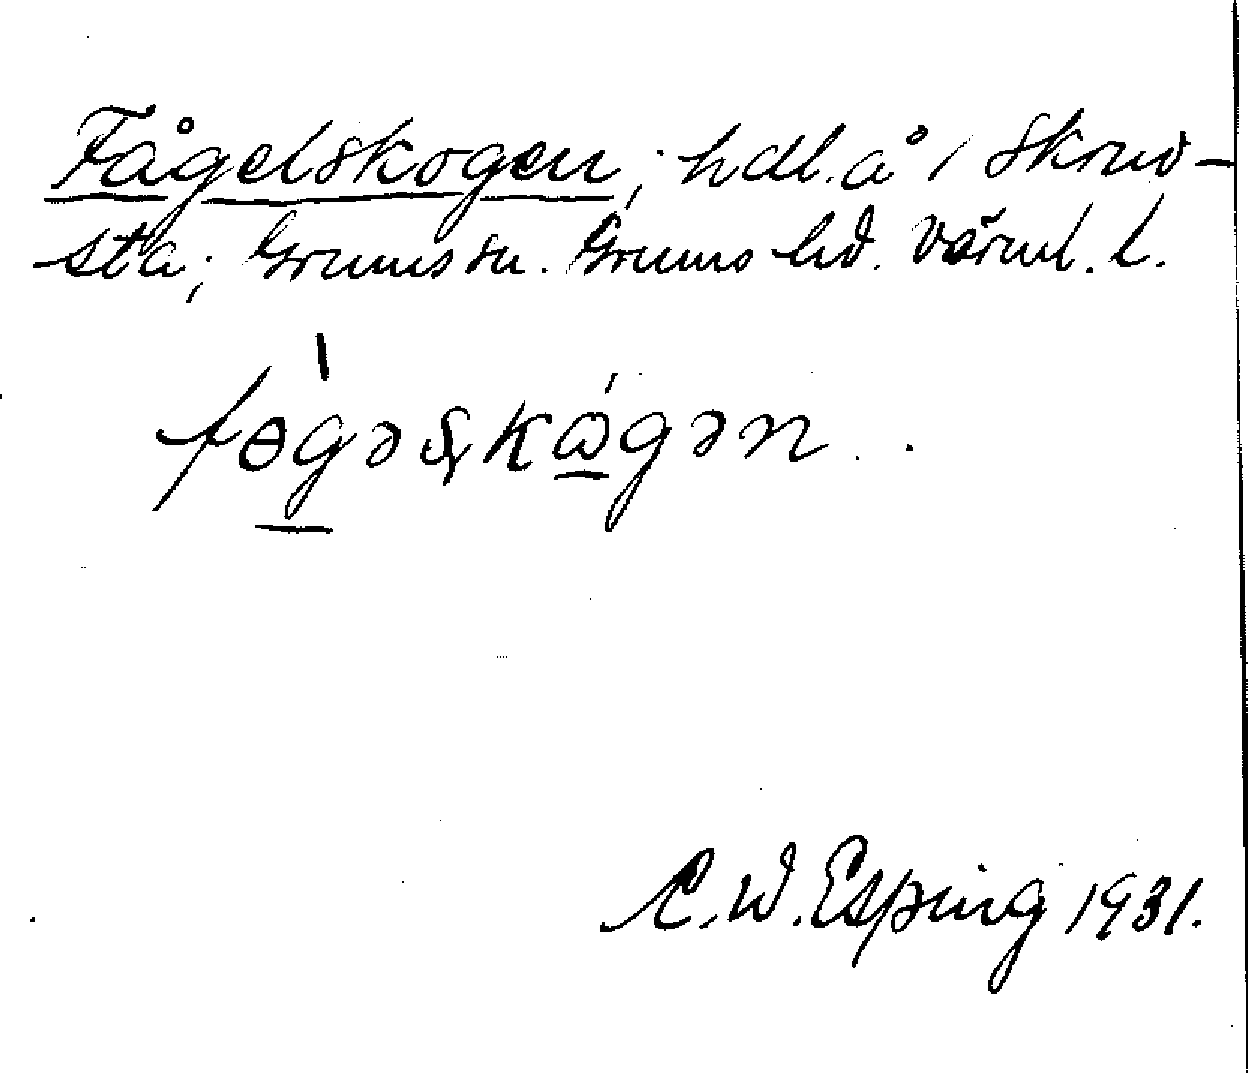 Fågelskogen; hdl. å i Skruv-
sta; Grums sn. Grums hd. Värml. l.
fɵ̀gəskɷ́gən.
C. W. Esping 1931.